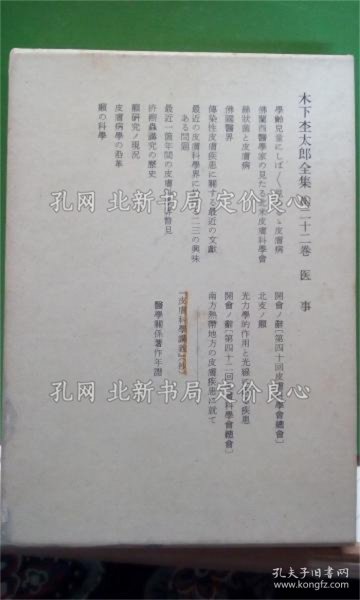 木下杢太郎全集 第二十二巻 医事
學齢兒童にしばしば
皮膚病
佛蘭西醫學家の見たる
皮膚科學會
絲狀菌と皮膚病
佛國醫界
傳染性皮膚疾患に關する最近の文獻
最近の皮膚科學界に
二三の興味
ある問題
最近一箇年間の皮膚
瞥見
疥癬蟲講究の歷史
癩研究ノ現況
皮膚病學の沿革
癩の科學
開會ノ辭〔第四十回皮膚
學會總會〕
北支ノ癩
光力學的作用と光線
疾患
開會ノ辭〔第四十二回
科學會總會〕
南方熱帶地方の皮膚疾患に就て
『皮膚科學講義』(抄)
醫學關係著作年譜
孔网 北新书局 定价良心
孔网 北新书局 定价良心
孔网 北新书局 定价良心
孔夫子旧书网